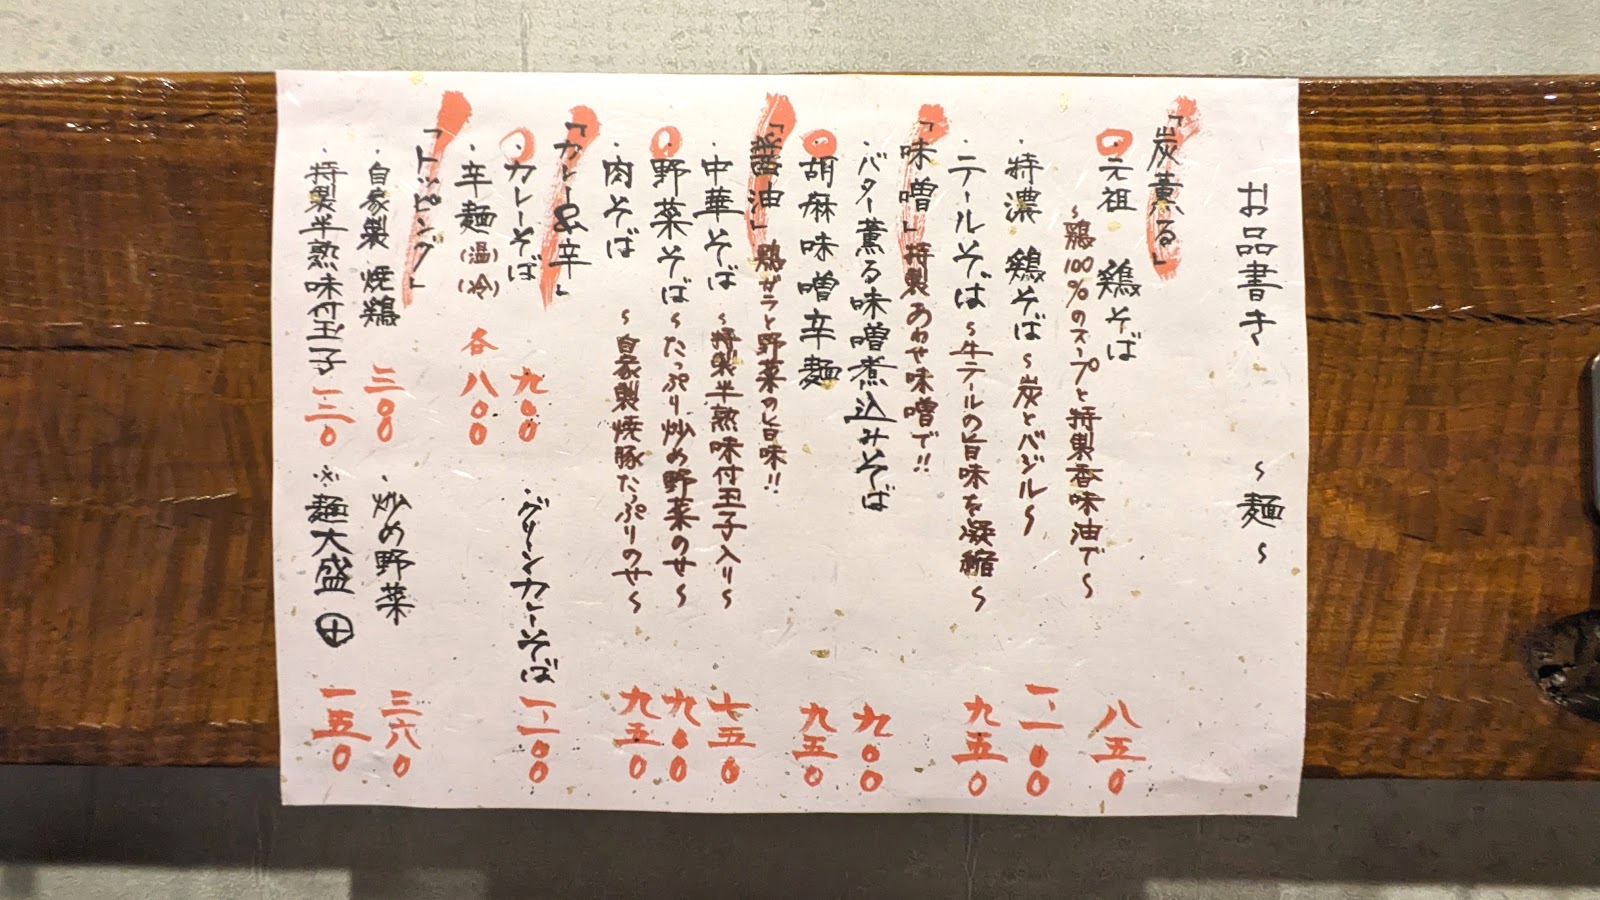 お品書き 〜麺〜
「炭薫る」
・元祖 鶏そば 八五〇
〜鶏100%のスープと特製香味油で〜
・特濃 鶏そば〜炭とバジル〜 一、一〇〇
・テールそば〜牛テールの旨味を凝縮〜 九五〇
「味噌」特製あわせ味噌で!!
・バター薫る味噌煮込みそば 九〇〇
・胡麻味噌辛麺 九五〇
「醤油」鶏ガラと野菜の旨味!!
・中華そば 〜特製半熟味付玉子入り〜 七五〇
・野菜そば〜たっぷり炒め野菜のせ〜 九〇〇
・肉そば 〜自家製焼豚たっぷりのせ〜 九五〇
「カレー&辛」
・カレーそば 九〇〇 ・グリーンカレーそば 一、一〇〇
・辛麺(温)(冷) 各 八〇〇
「トッピング」
・自家製 焼鶏 三〇〇 ・炒め野菜 三六〇
・特製半熟味付玉子 一三〇 ※麺大盛 ㊉ 一五〇